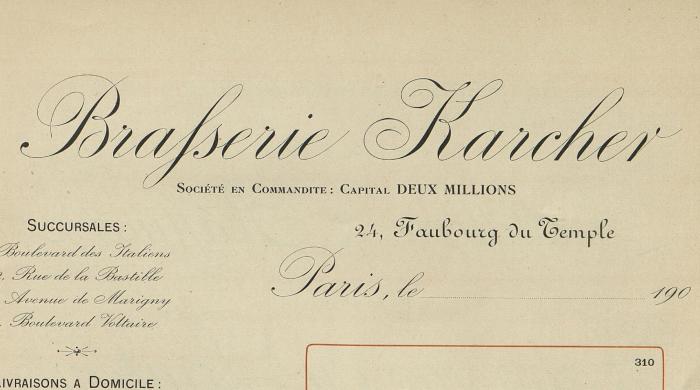 Brasserie Karcher
Société en Commandite: Capital DEUX MILLIONS
24, Faubourg du Temple
Paris, le 190
SUCCURSALES:
Boulevard des Italiens
Rue de la Bastille
Avenue de Marigny
Boulevard Voltaire
IVRAISONS A DOMICILE:
310